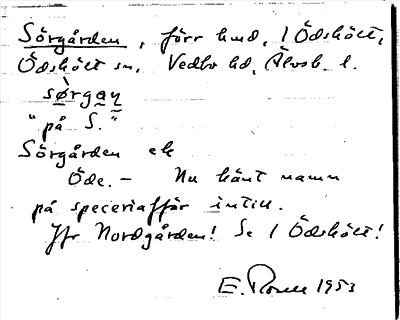 Sörgården, förr hmd, 1 Ödskölt,
Ödskölt sn, Vedbo hd, Älvsb. l.
sø̀rgaɳ
"på S."
Sörgården ek
Öde. – Nu känt namn
på speceriaffär intill.
Jfr Nordgården! Se 1 Ödskölt!
E. 1953